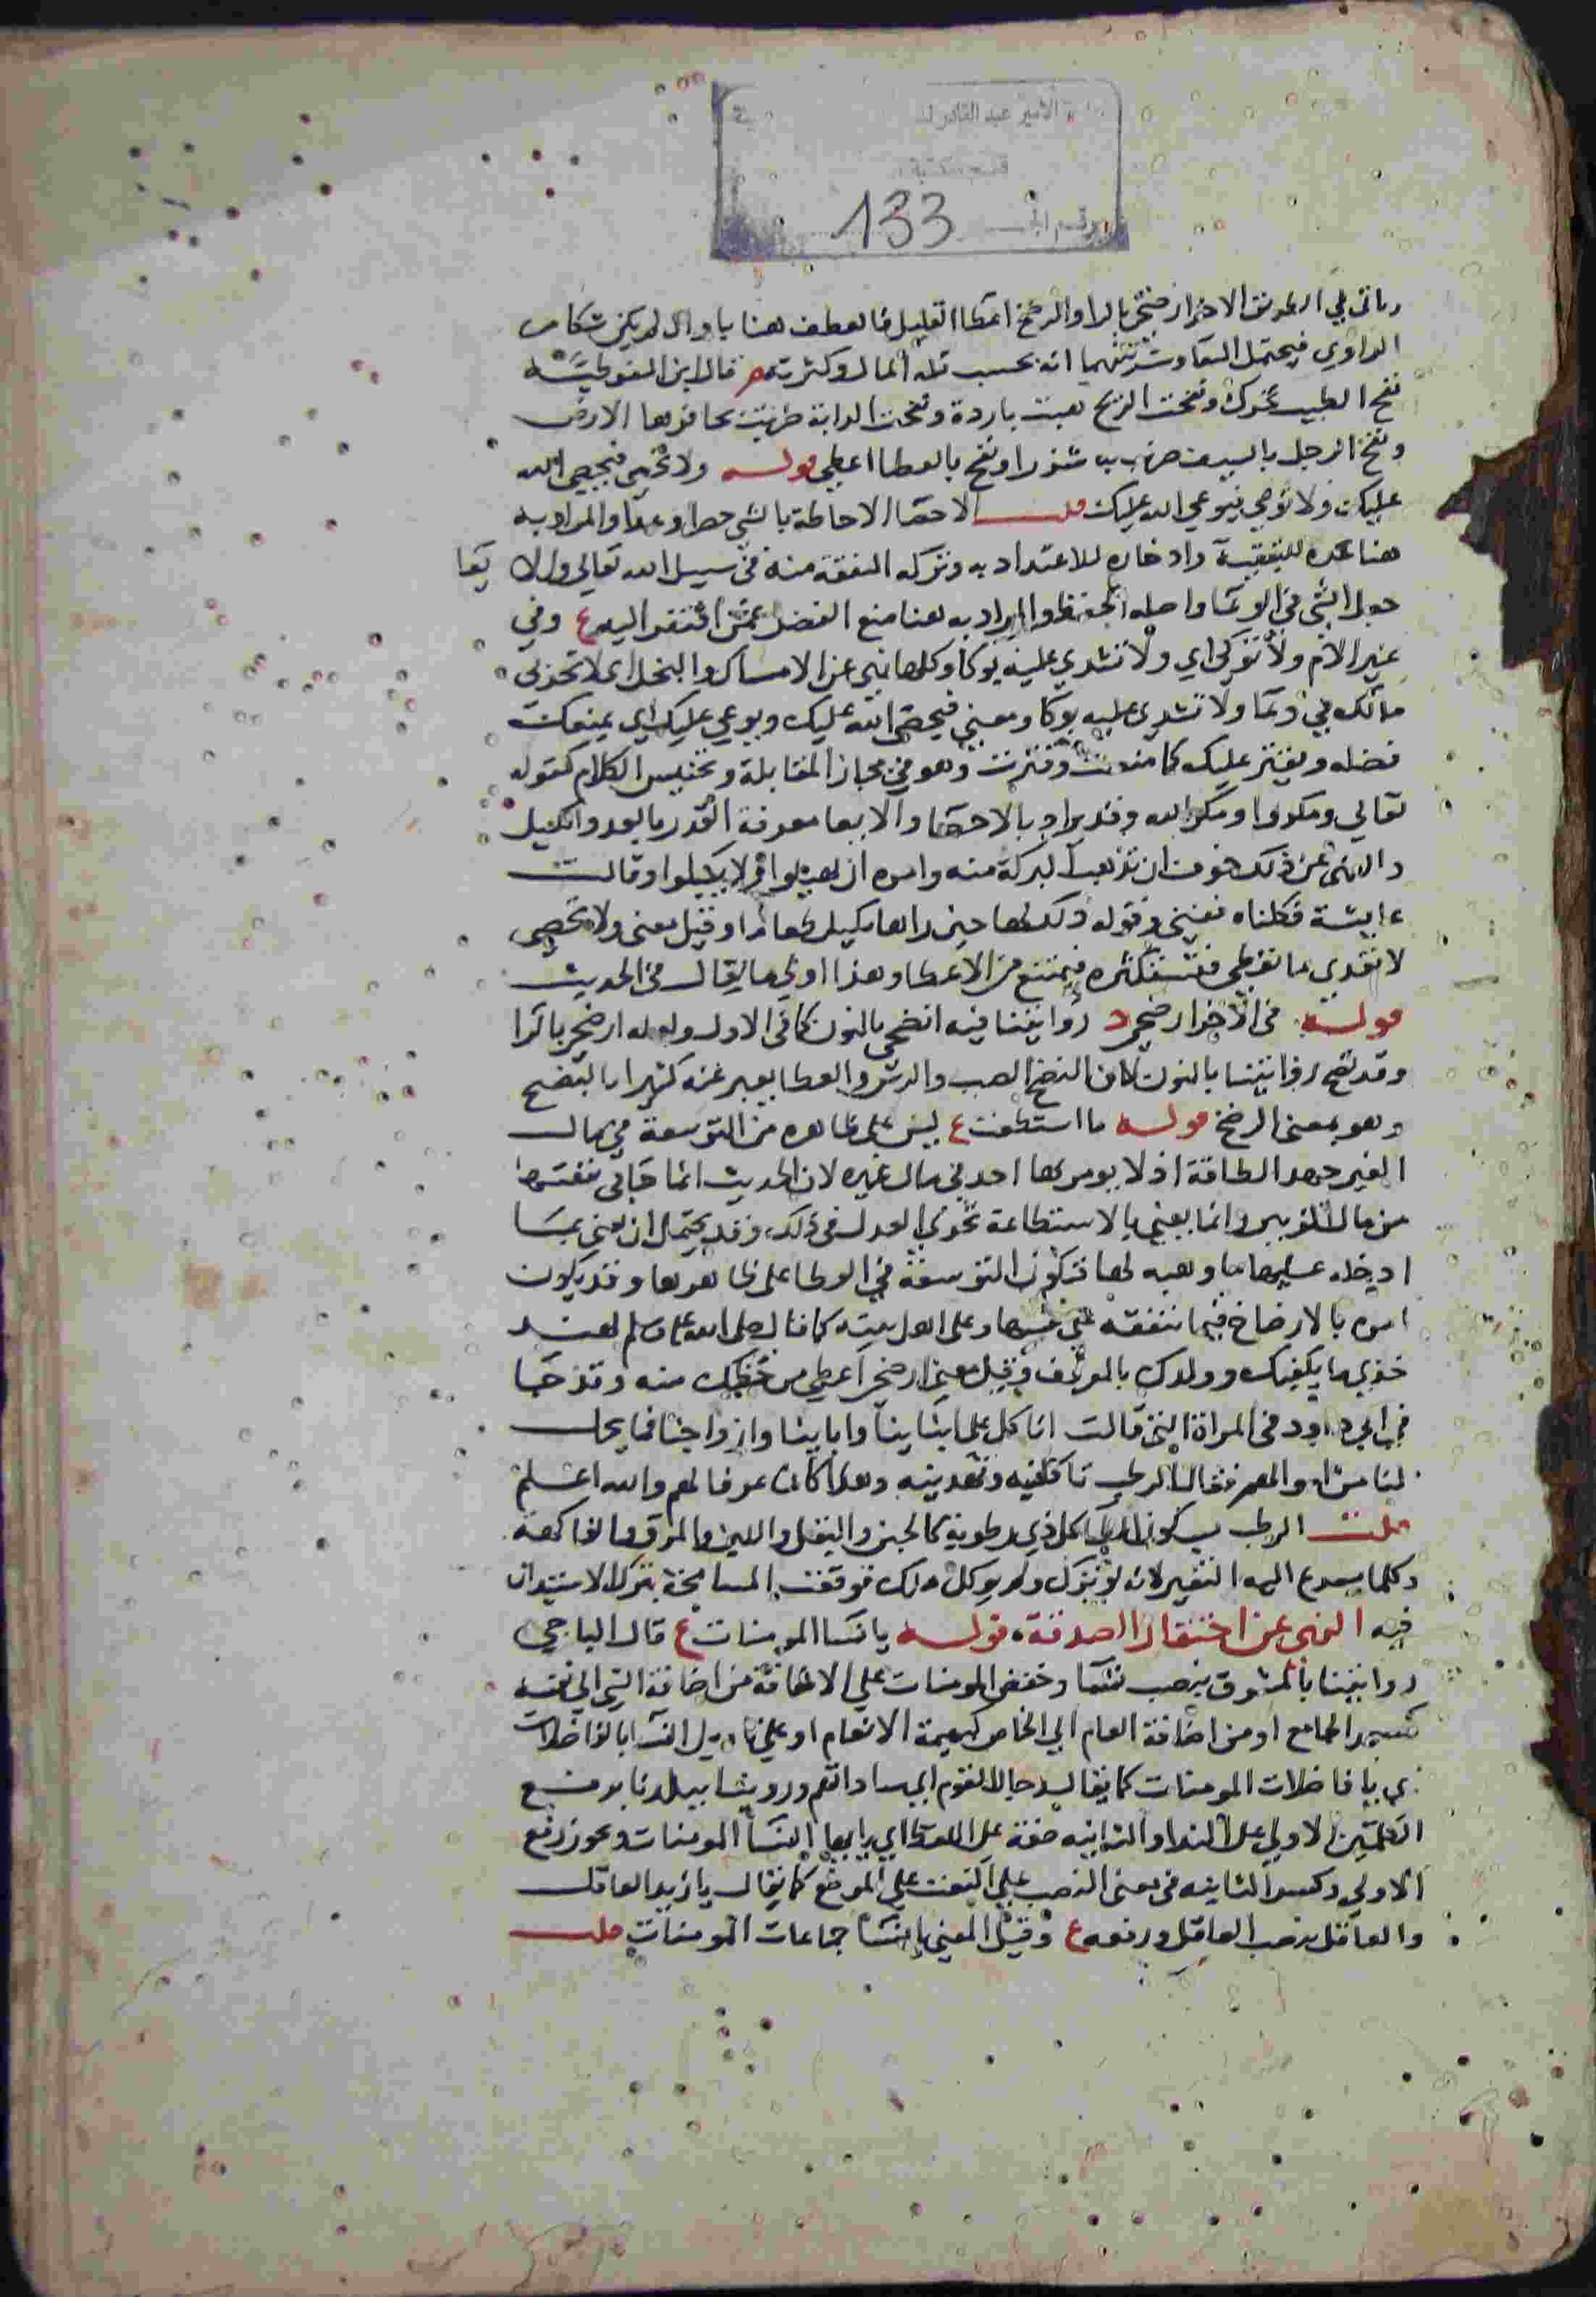 الأمير عبد القادر
133
وياتى في الطريق الاخر ارضخى بالرا والرضخ اعطا القليل فالعطف هنا باو ان لم يكن شكا من
الراوي فيحتمل التفاوت بينهما انه بحسب قلة المال وكثرته م قال ابن القوطية
نفح الطيب تحرك ونفحت الريح هبت باردة ونفحت الدابة ضربت بحافرها الارض
ونفح الرجل بالسيف ضرب به شزرا ونفح بالعطا اعطى قوله ولا تحصى فيحصى الله
عليك ولا توعي فيوعي الله عليك قلت الاحصا الاحاطة بالشي حصرا وعدا والمراد به
هنا عده للتبقية وادخاره للاعتداد به وترك النفقة منه في سبيل الله تعالى والايعا
جعل الشي في الوعا واصله الحفظ والمراد به هنا منع الفضل عمن افتقر اليه ع وفي
غير الام ولا توكي اي ولا تشدي عليه بوكا وكلها نهي عن الامساك والبخل اي لا تخزني
مالك في وعا ولا تشدي عليه بوكا ومعنى فيحصى الله عليك ويوعي عليك اي يمنعك
فضله ويقتر عليك كما منعت وقترت وهو في مجاز المقابلة وتجنيس الكلام كقوله
تعالى ومكروا ومكر الله وقد يراد بالاحصا والايعا معرفة القدر بالعد والكيل
والنهى عن ذلك خوف ان تذهب البركة منه وامره ان يهيلوا ولا يكيلوا وقالت
عايشة فكلناه ففني وقوله ذلك لها حين راها تكيل طعاما وقيل معنى ولا تحصى
لا تعدي ما تعطي فتستكثره فيمتنع من الاعطا وهذا اولى ما يقال في الحديث
قوله في الاخر ارضخى د روايتنا فيه انضحي بالنون كما في الاول ولعله ارضخي بالرا
وقد تصح روايتنا بالنون لان النضخ الصب والرش والعطا يعبر عنه كثيرا بالنضح
وهو بمعنى الرضخ قوله ما استطعت ع ليس على ظاهره من التوسعة في مال
الغير جهد الطاقة اذ لا يومر بها احد في مال غيره لان الحديث انما جا في نفقتها
من مال الزبير وانما يعني بالاستطاعة تحري العدل في ذلك وقد يحتمل ان يعني بما
ادخله عليها ما وهبه لها فتكون التوسعة في العطا على ظاهرها وقد يكون
امره بالارضاخ فيما تنفقه على نفسها وعلى اهل بيته كما قال صلى الله عليه وسلم لهند
خذي ما يكفيك وولدك بالمعروف وقيل معنى ارضخي اعطي من حظك منه وقد جا
في ابي داود في المراة التي قالت انا كل على ابناينا وابائنا وازواجنا فما يحل
لنا من اموالهم فقال الرطب تاكلنه وتهدينه وهذا كان عرفا لهم والله اعلم
قلت الرطب بسكون الطا كل ذي رطوبة كالجبن والبقل واللبن والمرق والفاكهة
وكلما يسرع اليه التغير لانه لو ترك ولم يوكل هلك فوقعت المسامحة بترك الاستيذان
فيه النهى عن احتقار الصدقة، قوله يا نسا المومنات ع قال الباجي
روايتنا بالمشرق بنصب نسا وخفض المومنات على الاضافة من اضافة الشي الى نفسه
كمسجد الجامع او من اضافة العام الى الخاص كبهيمة الانعام او على تاويل النسا بالفاضلات
اي يا فاضلات المومنات كما يقال رجالا القوم اي ساداتهم وروينا ببلدنا برفع
الكلمتين الاولى على الندا والثانيه صفة على اللفظ اي يا ايها النسا المومنات ويجوز رفع
الاولي وكسر الثانيه في معنى النصب على النعت على الموضع كما يقال يا زيد العاقل
والعاقل بنصب العاقل ورفعه ع وقيل المعنى يا نسا جماعات المومنات قلت